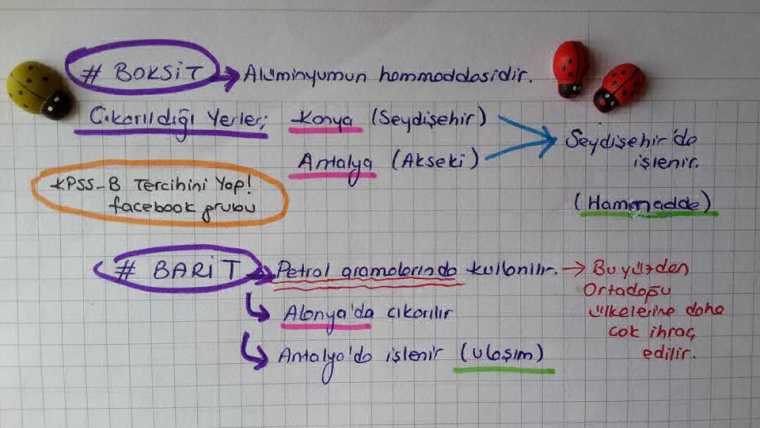 # BOKSİT → Alüminyumun hammaddesidir.
Çıkarıldığı Yerler; Konya (Seydişehir)
Antalya (Akseki)
Seydişehir'de
işlenir.
(Hammadde)
KPSS-B Tercihini Yap!
facebook grubu
# BARİT → Petrol aramalarında kullanılır. → Bu yüzden
Ortadoğu
ülkelerine daha
çok ihraç
edilir.
Alanya'da çıkarılır
Antalya'da işlenir (ulaşım)